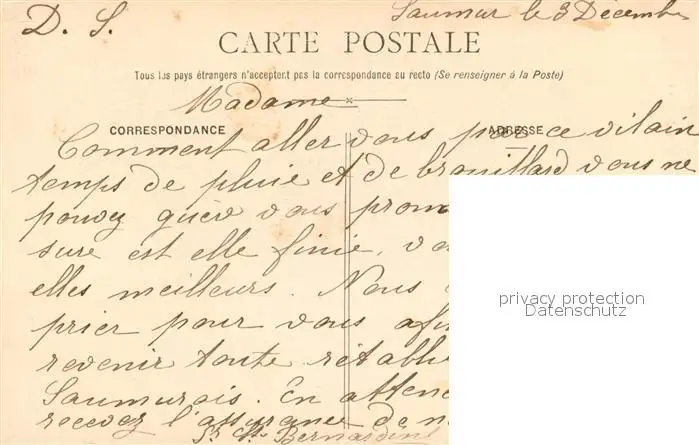 D. S.
Saumur le 3 Décembre
CARTE POSTALE
Tous les pays étrangers n'acceptent pas la correspondance au recto (Se renseigner à la Poste)
Madame
CORRESPONDANCE
ADRESSE
Comment aller vous par ce vilain
temps de pluie et de brouillard vous ne
pouvez guère vous prom
sure est elle finie, vo
elles meilleurs. Nous
prier pour vous afin
revenir toute rétabli
Saumurois. En atten
recevez l'assurance de n
St Bernardin
privacy protection
Datenschutz